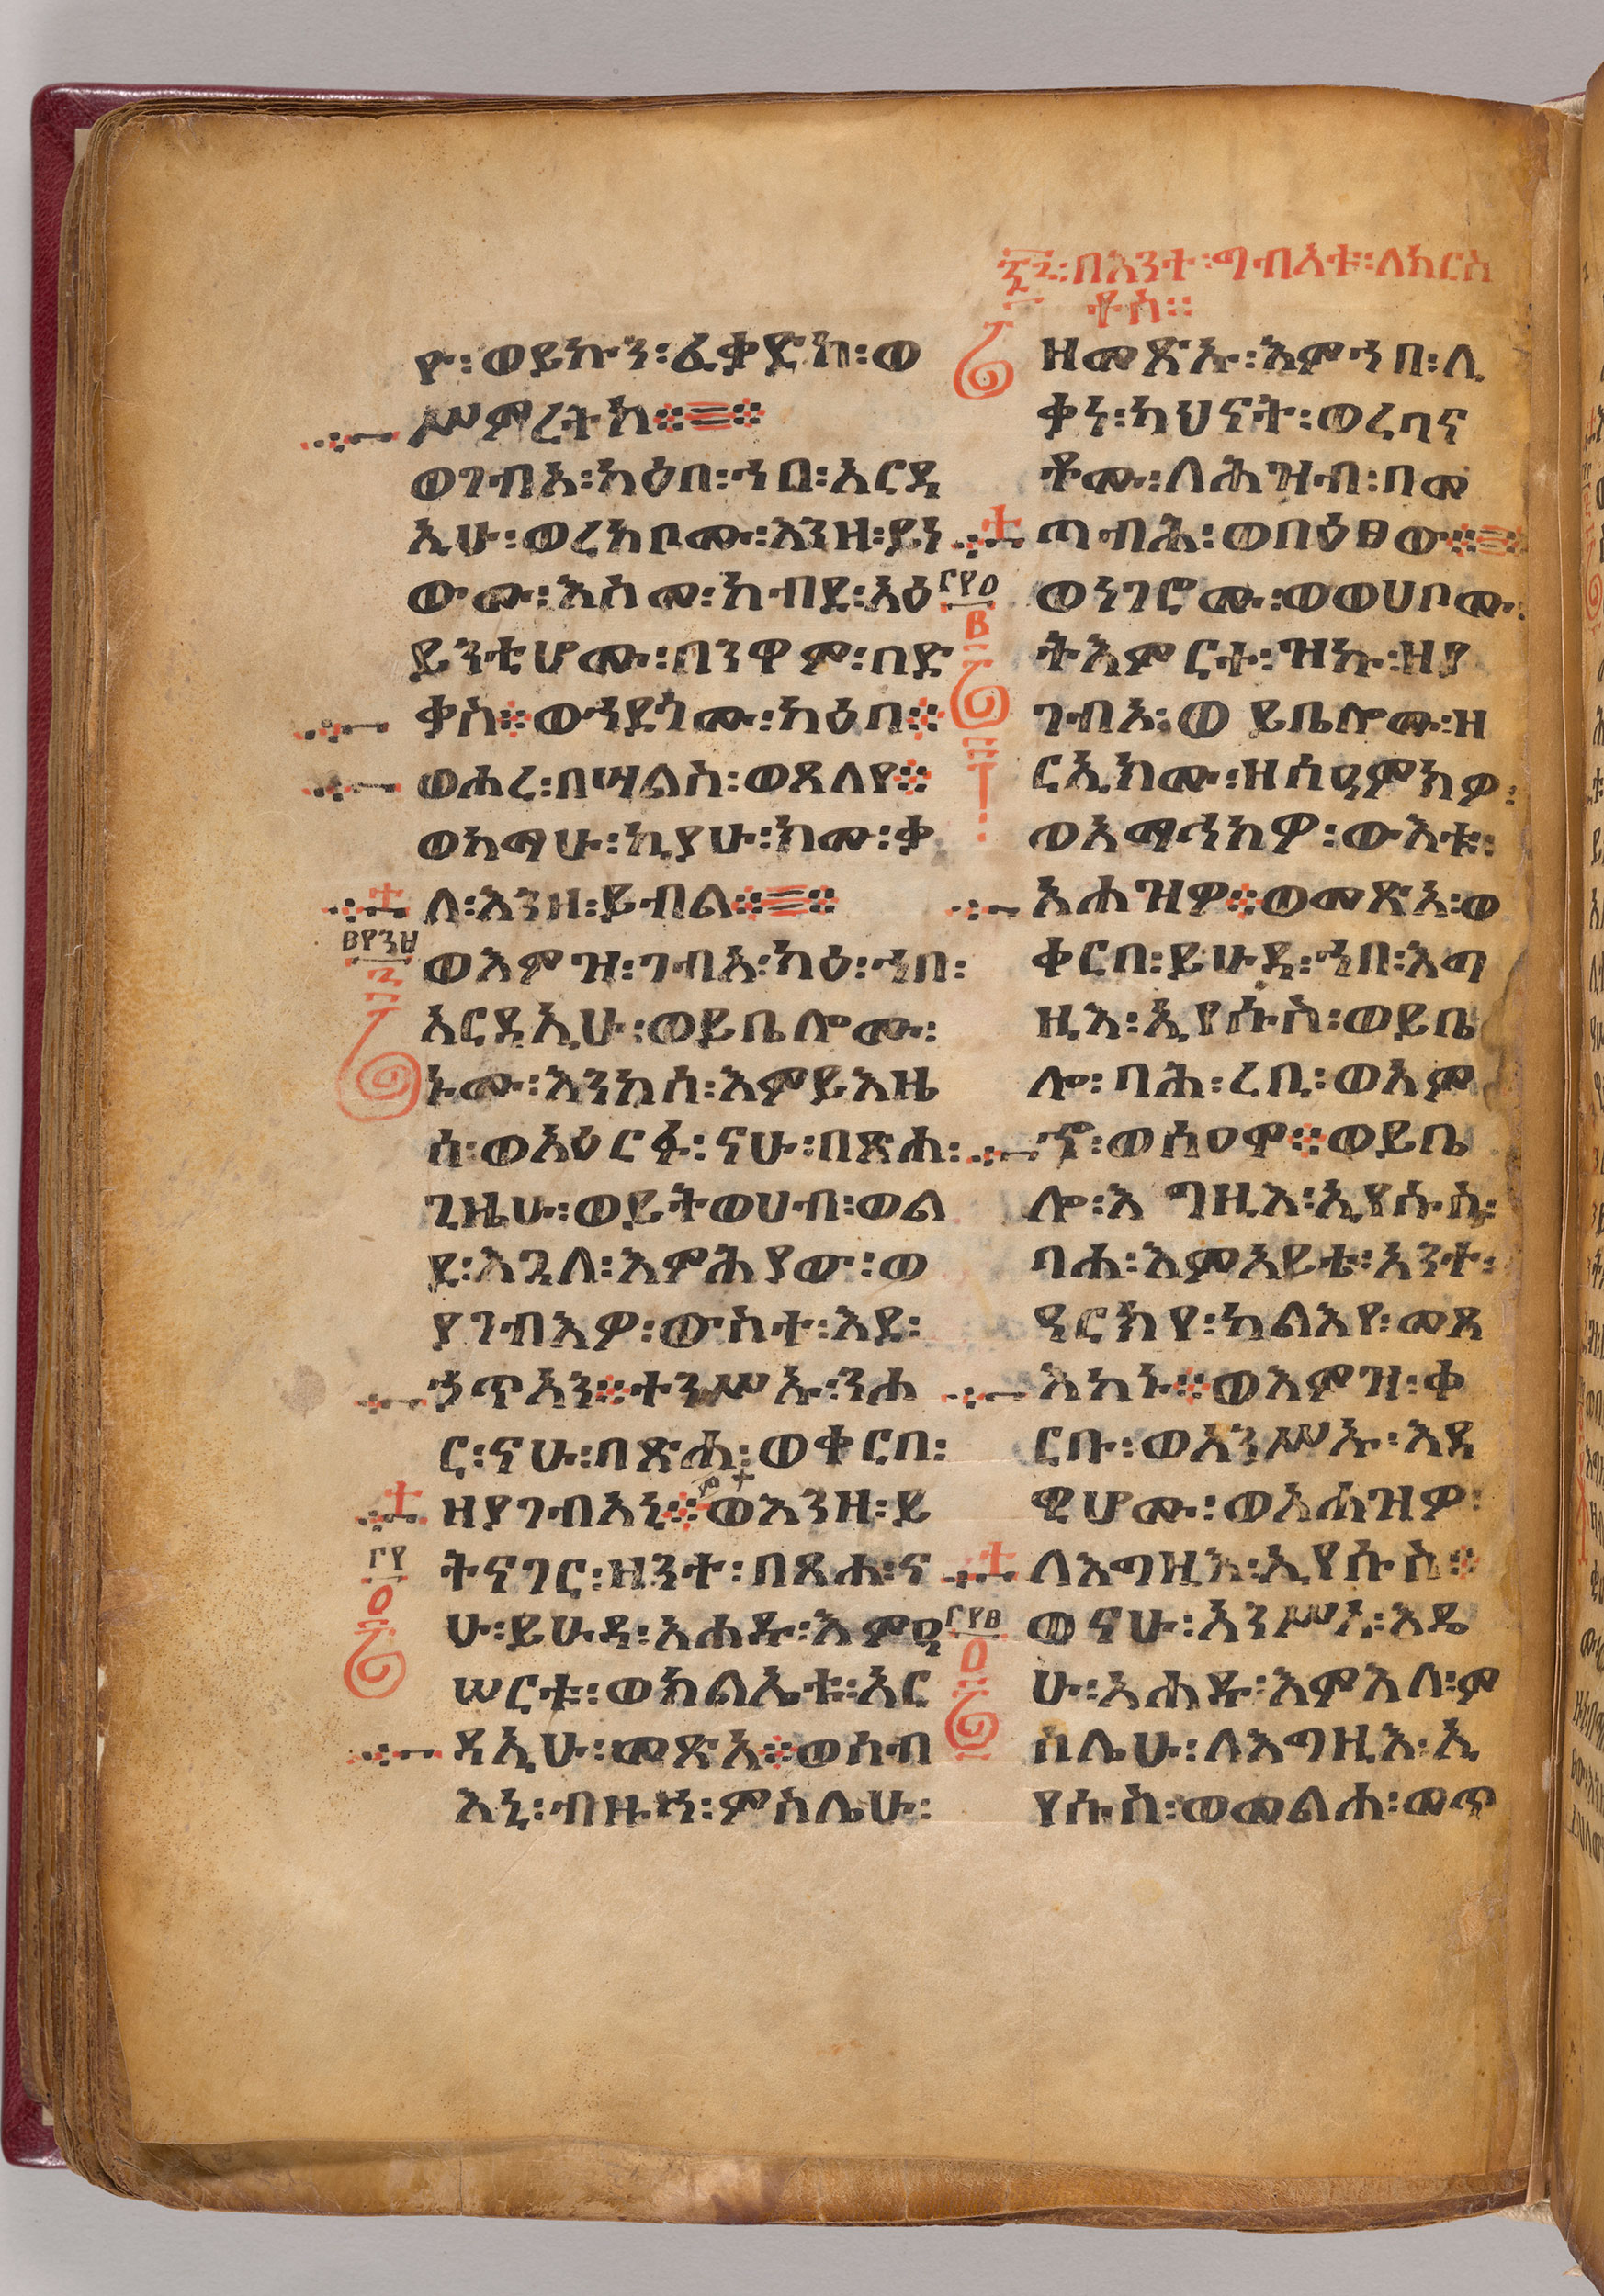 ፷፯፡በእንተ፡ግብአቱ፡ለክርስ
ቶስ።
ዮ፡ወይኩን፡ፈቃድከ፡ወ
ሥምረትከ
ወገብአ፡ካዕበ፡ኀበ፡አርዳ
ኢሁ፡ወረከቦሙ፡እንዘ፡ይነ
ውሙ፡እስመ፡ከብደ፡አዕ
ይንቲሆሙ፡በንዋም፡በድ
ቃስ፨ወኀደጎሙ፡ካዕበ፨
ወሐረ፡በሣልስ፡ወጸለየ፨
ወኣማሁ፡ኪያሁ፡ክመ፡ቃ
ለ፡እንዘ፡ይብል
ወእምዝ፡ገብአ፡ካዕ፡ኀበ፡
አርዳኢሁ፡ወይቤሎሙ፡
ኑሙ፡እንከሰ፡እምይእዜ
ሰ፡ወአዕርፉ፡ናሁ፡በጽሐ፡
ጊዜሁ፡ወይትወሀብ፡ወል
ደ፡እጓለ፡እምሕያው፡ወ
ያገብእዎ፡ውስተ፡እደ፡
ኃጥአን፨ተንሥኡ፡ንሐ
ር፡ናሁ፡በጽሐ፡ወቀርበ፡
ዘያገብአኒ፨ወእንዘ፡ይ
ትናገር፡ዘንተ፡በጸሐ፡ና
ሁ፡ይሁዳ፡አሐዱ፡እምዐ
ሠርቱ፡ወክልኤቱ፡አር
ዳኢሁ፡መጽአ፨ወሰብ
እኒ፡ብዙኃ፡ምስሌሁ፡
ዘመጽኡ፡እምኀበ፡ሊ
ቃነ፡ካህናት፡ወረባና
ቶሙ፡ለሕዝብ፡በመ
ጣብሕ፡ወበዕፀው
ወነገሮሙ፡ወወሀቦሙ፡
ትእምርተ፡ዝኩ፡ዘያ
ገብአ፡ወይቤሎሙ፡ዘ
ርኢክሙ፡ዘሰዓምክዎ፡
ወአማኅክዎ፡ውእቱ፡
አሐዝዎ፨ወመጽአ፡ወ
ቀርበ፡ይሁዳ፡ኀበ፡እግ
ዚእ፡ኢየሱስ፡ወይቤ
ሎ፡ባሕ፡ረቢ፡ወአም
ኆ፡ወሰዐሞ፨ወይቤ
ሎ፡እግዚእ፡ኢየሱስ፡
ባሐ፡እምአይቴ፡አንተ፡
ዓርክየ፡ካልእየ፡መጻ
እከኑ፨ወእምዝ፡ቀ
ርቡ፡ወአንሥኡ፡እደ
ዊሆሙ፡ወአሐዝዎ፡
ለእግዚእ፡ኢየሱስ፨
ወናሁ፡አንሥአ፡እዴ
ሁ፡አሐዱ፡እምእለ፡ም
ስሌሁ፡ለእግዚእ፡ኢ
የሱስ፡ወመልሐ፡መጥ